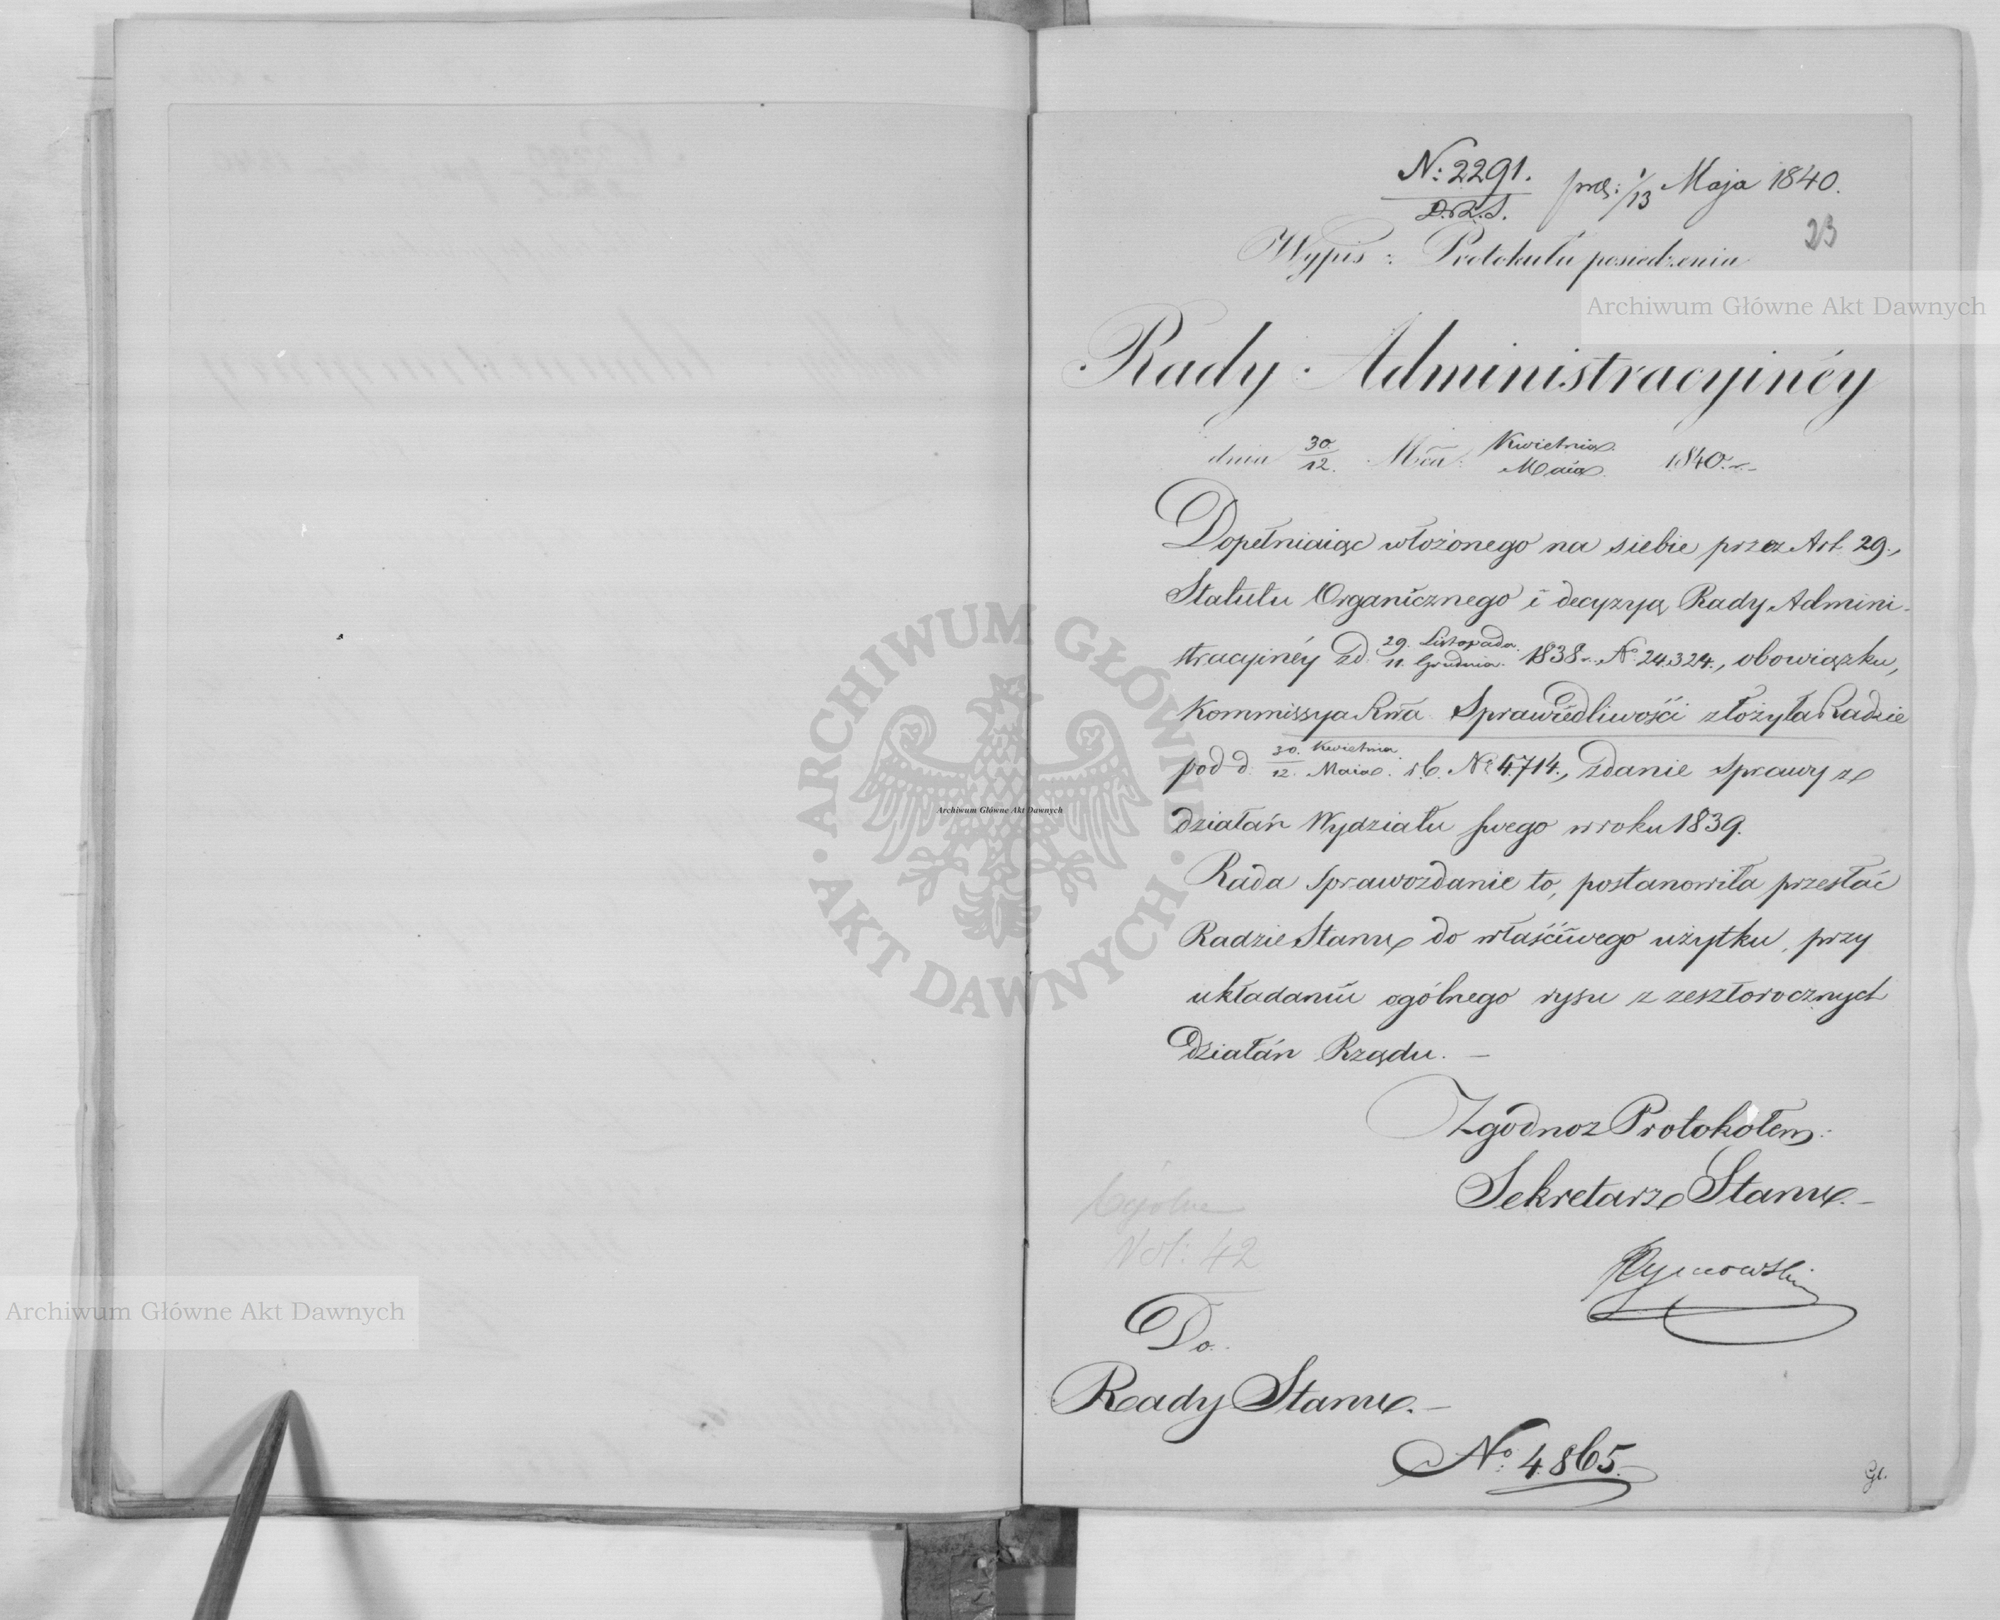 N: 2291. / D.R.S. prez: 1/13 Maja 1840.
23
Wypis z Protokułu posiedzenia
Archiwum Główne Akt Dawnych
Rady Administracyinéy
dnia 30/12. Mca: Kwietnia/Maia 1840.
Dopełniaiąc włożonego na siebie przez Art. 29.,
Statutu Organicznego i decyzyą Rady Admini-
stracyinéy z d. 29. Listopada/11. Grudnia. 1838 No 24.324., obowiązku,
Kommissya Rwa Sprawiedliwości złożyła Radzie
pod d. 30. Kwietnia/12. Maia. r.b. No 4.714., zdanie sprawy z
działań Wydziału swego w roku 1839.
Rada sprawozdanie to, postanowiła przesłać
Radzie Stanu do właściwego użytku, przy
układaniu ogólnego rysu z zeszłorocznych
działań Rządu. —
Zgodno z Protokołem:
Sekretarz Stanu. —
Ogólne
Vol: 42
Do.
Rady Stanu. —
No. 4.865.
Gl.
ARCHIWUM GŁÓWNE AKT DAWNYCH
Archiwum Główne Akt Dawnych
Archiwum Główne Akt Dawnych